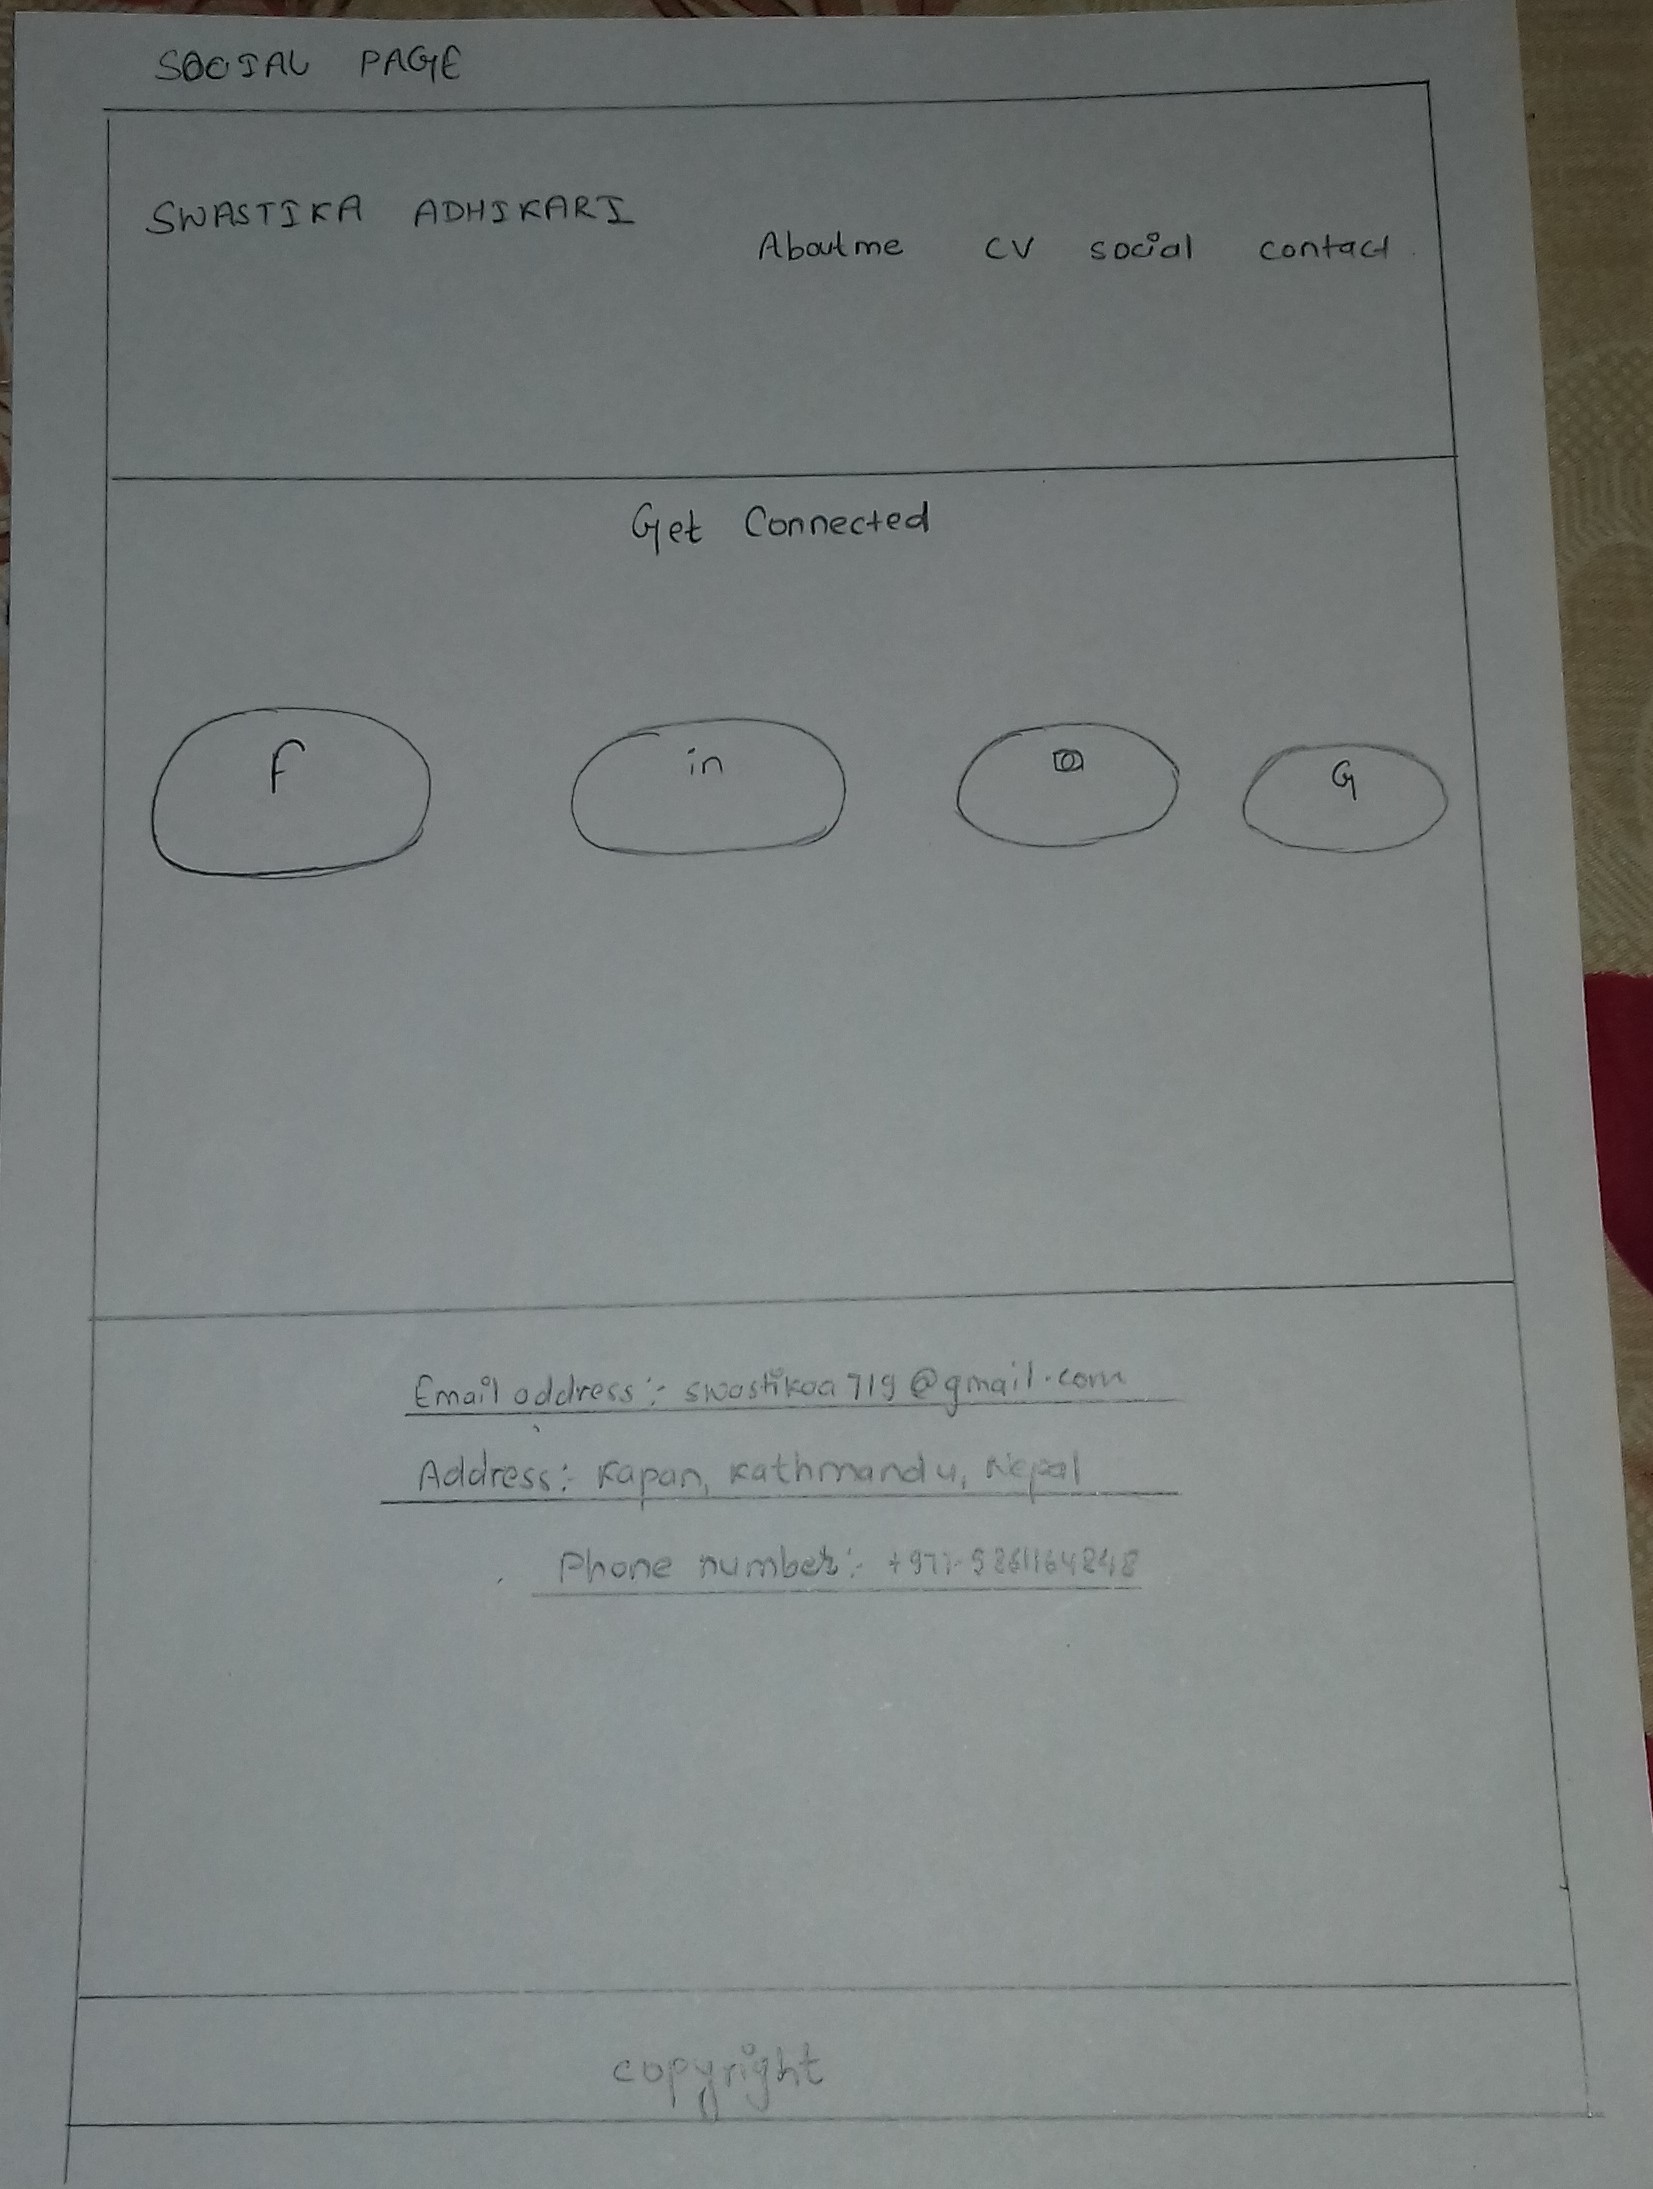 SOCIAL PAGE
SWASTIKA ADHIKARI
About me CV social contact
Get Connected
f in G
Email address:- swastikaa719@gmail.com
Address:- Kapan, Kathmandu, Nepal
Phone number:-
copyright